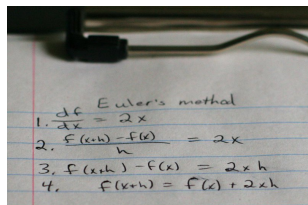 Euler's method
1. df/dx = 2x
2. f(x+h) - f(x) / h = 2x
3. f(x+h) - f(x) = 2xh
4. f(x+h) = f(x) + 2xh